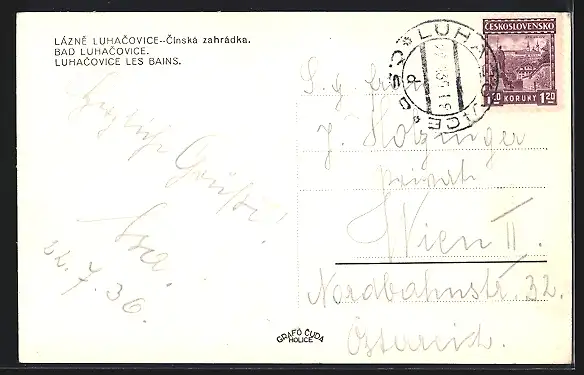 LÁZNĚ LUHAČOVICE--Čínská zahrádka.
BAD LUHAČOVICE.
LUHAČOVICE LES BAINS.
Herzliche
Grüße!
22.7.36.
ČESKOSLOVENSKO
1.20 KORUNY 1.20
LUHAČOVICE
ČSD
S. g. Herrn
J. Holzinger
Privat
Wien II.
Nordbahnstr. 32.
Österreich.
GRAFO ČUDA
HOLICE